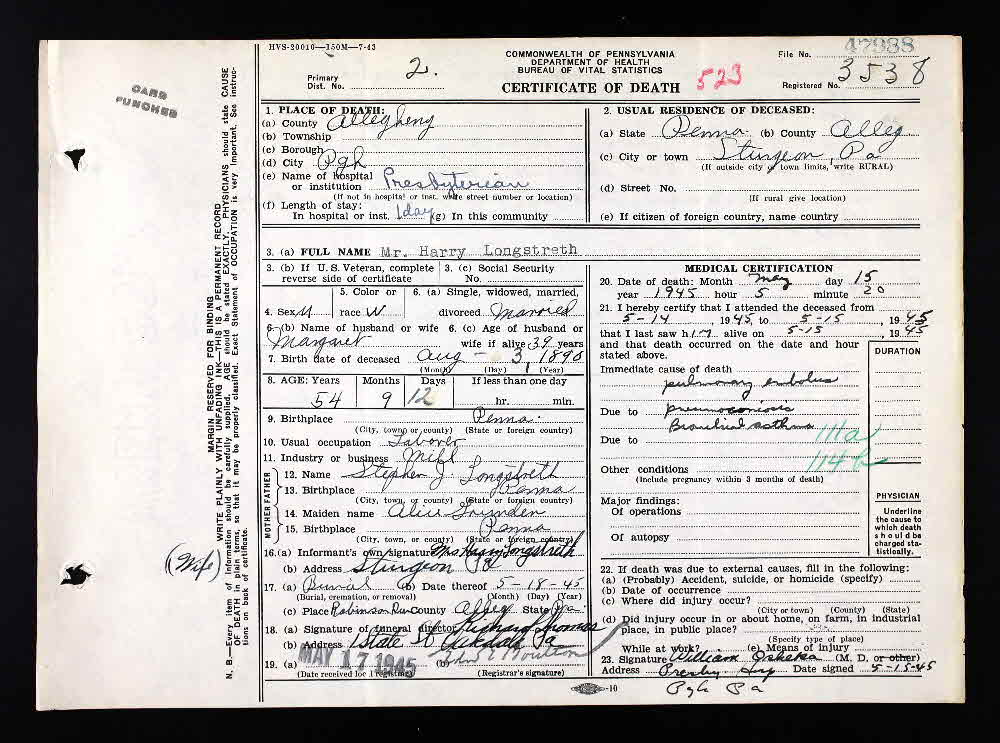 HVS-20010—150M—7-43
COMMONWEALTH OF PENNSYLVANIA
DEPARTMENT OF HEALTH
BUREAU OF VITAL STATISTICS
CERTIFICATE OF DEATH
523
File No. 47988
Registered No. 3538
Primary
Dist. No. 2.
CARD
PUNCHED
MARGIN RESERVED FOR BINDING
WRITE PLAINLY WITH UNFADING INK—THIS IS A PERMANENT RECORD
N. B.—Every item of information should be carefully supplied. AGE should be stated EXACTLY. PHYSICIANS should state CAUSE
OF DEATH in plain terms, so that it may be properly classified. Exact Statement of OCCUPATION is very important. See instruc-
tions on back of certificate.
1. PLACE OF DEATH:
(a) County Allegheny
(b) Township
(c) Borough
(d) City Pgh
(e) Name of Hospital
or institution Presbyterian
(If not in hospital or inst. write street number or location)
(f) Length of stay:
In hospital or inst. 1 day (g) In this community
2. USUAL RESIDENCE OF DECEASED:
(a) State Penna. (b) County Alleg
(c) City or town Sturgeon, Pa
(If outside city or town limits, write RURAL)
(d) Street No.
(If rural give location)
(e) If citizen of foreign country, name country
3. (a) FULL NAME Mr. Harry Longstreth
3. (b) If U.S. Veteran, complete
reverse side of certificate
3. (c) Social Security
No.
4. Sex M
5. Color or
race W
6. (a) Single, widowed, married,
divorced Married
6. (b) Name of husband or wife
Margaret
6. (c) Age of husband or
wife if alive 39 years
7. Birth date of deceased Aug - 3, 1890
(Month) (Day) (Year)
8. AGE: Years Months Days If less than one day
54 9 12 hr. min.
9. Birthplace Penna.
(City, town or county) (State or foreign country)
10. Usual occupation Laborer
11. Industry or business Mill
MOTHER FATHER
12. Name Stephen J Longstreth
13. Birthplace Penna
(City, town, or county) (State or foreign country)
14. Maiden name Alice
15. Birthplace Penna
(City, town, or county) (State or foreign country)
(Wife)
16. (a) Informant's own signature Mrs Harry Longstreth
(b) Address Sturgeon Pa
17. (a) Burial (b) Date thereof 5-18-45
(Burial, cremation, or removal) (Month) (Day) (Year)
(c) Place Robinson Run County Alleg State Pa.
18. (a) Signature of funeral director Richard Thomas
(b) Address State St Pa
19. (a) MAY 17 1945 (b)
(Date received loc l registrar) (Registrar's signature)
MEDICAL CERTIFICATION
20. Date of death: Month May day 15
year 1945 hour 5 minute 20
21. I hereby certify that I attended the deceased from
5-14, 1945, to 5-15, 1945
that I last saw him alive on 5-15, 1945
and that death occurred on the date and hour
stated above.
DURATION
Immediate cause of death
pulmonary embolus
Due to pneumoconiosis
Bronchial asthma
Due to
111a
114b
Other conditions
(Include pregnancy within 3 months of death)
Major findings:
Of operations
Of autopsy
PHYSICIAN
Underline
the cause to
which death
should be
charged sta-
tistically.
22. If death was due to external causes, fill in the following:
(a) (Probably) Accident, suicide, or homicide (specify)
(b) Date of occurrence
(c) Where did injury occur?
(City or town) (County) (State)
(d) Did injury occur in or about home, on farm, in industrial
place, in public place?
(Specify type of place)
While at work? (e) Means of injury
23. Signature William (M. D. or other)
Address Presby. Date signed 5-15-45
Pgh Pa
-10